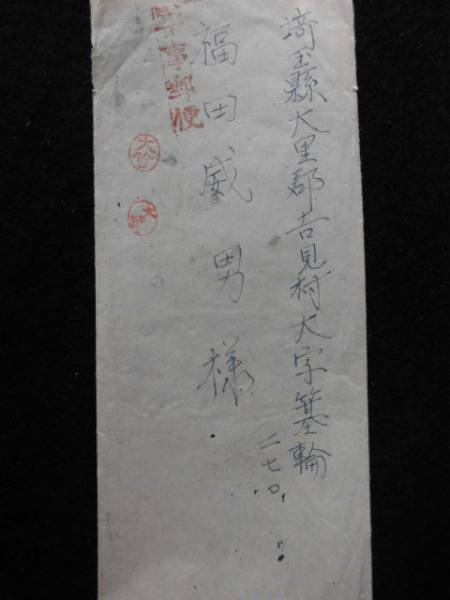 埼玉縣大里郡吉見村大字箕輪
二七〇
福田威男様
軍事郵便